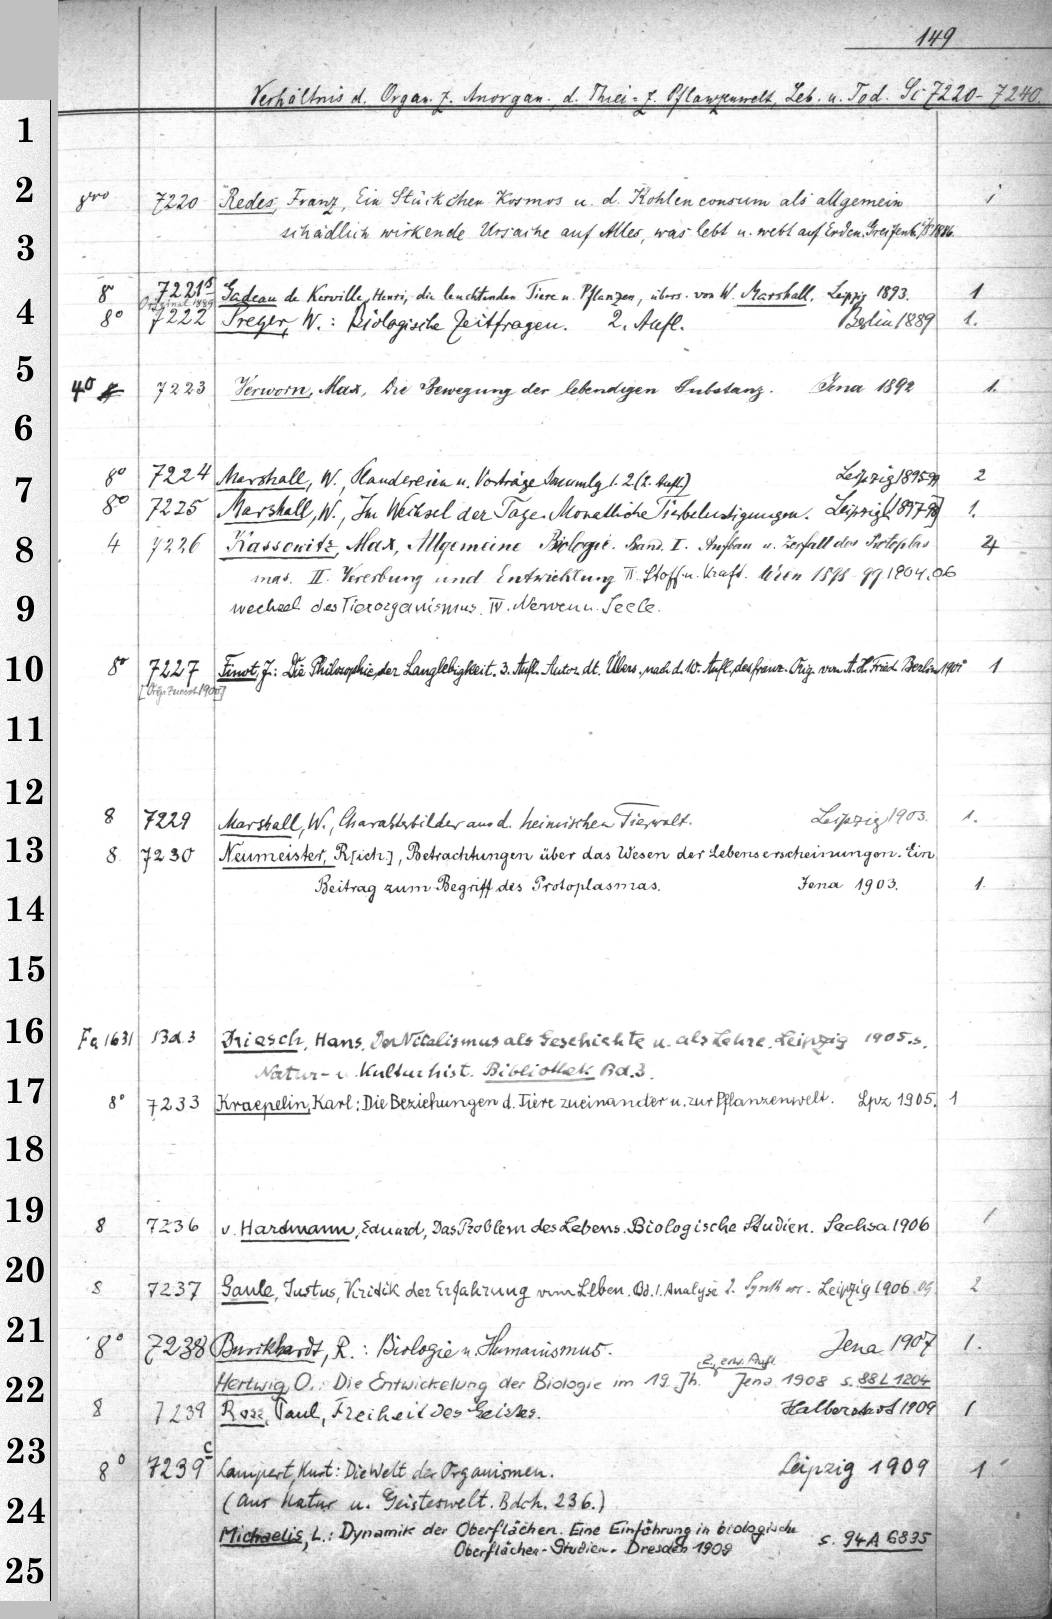 149
Verhältnis d. Organ. z. Anorgan. d. Thier- z. Pflanzenwelt, Leb. u. Tod. Si 7220-7240
1
2
8vo 7220 Redes, Franz, Ein Stückchen Kosmos u. d. Kohlenconsum als allgemein 1
schädlich wirkende Ursache auf Alles, was lebt u. webt auf Erden. Greifenb. 1886.
3
8° 7221 Gadeau de Kerville, Henri, die leuchtenden Tiere u. Pflanzen, übers. von W. Marshall. Leipzig 1893. 1
Original 1889
4
8° 7222 Preyer, W.: Biologische Zeitfragen. 2. Aufl. Berlin 1889 1.
5
4° 7223 Verworn, Max, Die Bewegung der lebendigen Substanz. Jena 1892 1.
6
7
8° 7224 Marshall, W., Plaudereien u. Vorträge Sammlg 1. 2 (2. Aufl.) Leipzig 1895-97 2
8° 7225 Marshall, W., Im Wechsel der Tage. Monatliche Tierbelustigungen. Leipzig [1897-98] 1.
8
4 7226 Kassowitz, Max, Allgemeine Biologie. Band. I. Aufbau u. Zerfall des Protoplas 4
mas. II. Vererbung und Entwicklung III. Stoff u. Kraft. Wien 1898. 99. 1904. 06
9
wechsel des Tierorganismus. IV. Nerven u. Seele.
10
8° 7227 Finot, J.: Die Philosophie der Langlebigkeit. 3. Aufl. Autor. dt. Übers. nach d. 10. Aufl. des franz. Orig. von A. H. Fried. Berlin 1901 1
[Orig. zuerst 1900]
11
12
8 7229 Marshall, W., Charakterbilder aus d. heimischen Tierwelt. Leipzig 1903. 1.
13
8 7230 Neumeister, R[ich.], Betrachtungen über das Wesen der Lebenserscheinungen. Ein
Beitrag zum Begriff des Protoplasmas. Jena 1903. 1.
14
15
16
Fa 1631 Bd. 3 Driesch, Hans, Der Vitalismus als Geschichte u. als Lehre. Leipzig 1905. s.
Natur- u. Kulturhist. Bibliothek Bd. 3.
17
8° 7233 Kraepelin, Karl: Die Beziehungen d. Tiere zueinander u. zur Pflanzenwelt. Lpz 1905. 1
18
19
8 7236 v. Hartmann, Eduard, Das Problem des Lebens. Biologische Studien. Sachsa 1906 1
20
8 7237 Gaule, Justus, Kritik der Erfahrung vom Leben. Bd. 1. Analyse 2. Leipzig 1906. 09 2
21
8° 7238 Burckhardt, R.: Biologie u. Humanismus. Jena 1907 1.
2. erw. Aufl.
22
Hertwig, O.: Die Entwickelung der Biologie im 19. Jh. Jena 1908 s. 88 L 1204
8 7239 Paul, Freiheit des Geistes. Halberstadt 1909 1
23
8° 7239c Lampert, Kurt: Die Welt der Organismen. Leipzig 1909 1
24
(Aus Natur u. Geisteswelt. Bdch. 236.)
Michaelis, L.: Dynamik der Oberflächen. Eine Einführung in biologische s. 94 A 6835
Oberflächen-Studien. Dresden 1909
25